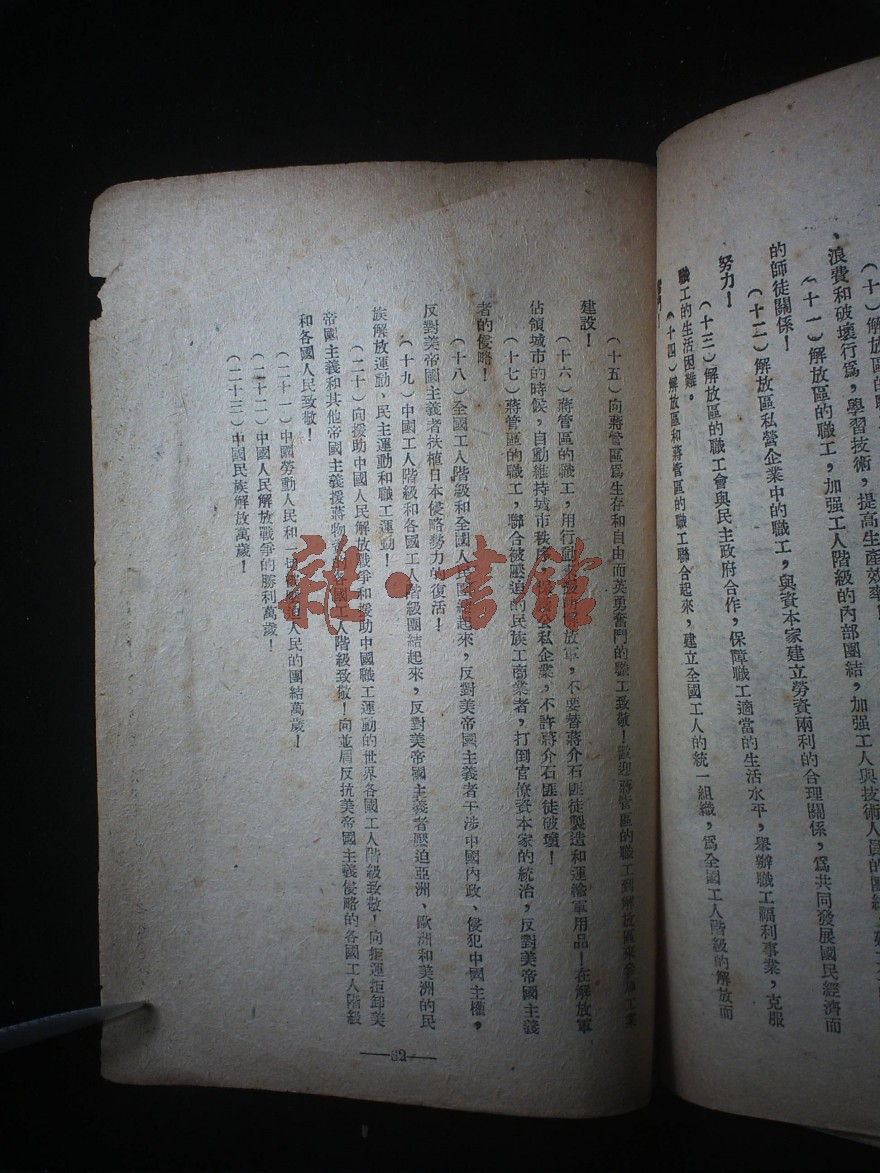 （十）解放區的職工，
、浪費和破壞行爲，學習技術，提高生產效率！
（十一）解放區的職工，加强工人階級的內部團結，加强工人與技術人員的團結，
的師徒關係！
（十二）解放區私營企業中的職工，與資本家建立勞資兩利的合理關係，爲共同發展國民經濟而
努力！
（十三）解放區的職工會與民主政府合作，保障職工適當的生活水平，舉辦職工福利事業，克服
職工的生活困難。
（十四）解放區和蔣管區的職工聯合起來，建立全國工人的統一組織，爲全國工人階級的解放而
（十五）向蔣管區爲生存和自由而英勇奮鬥的職工致敬！歡迎蔣管區的職工到解放區來參加工業
建設！
（十六）蔣管區的職工，用行動來援助解放軍，不要替蔣介石匪徒製造和運輸軍用品！在解放軍
佔領城市的時候，自動維持城市秩序，保護公私企業，不許蔣介石匪徒破壞！
（十七）蔣管區的職工，聯合被壓迫的民族工商業者，打倒官僚資本家的統治，反對美帝國主義
者的侵略！
（十八）全國工人階級和全國人民團結起來，反對美帝國主義者干涉中國內政、侵犯中國主權，
反對美帝國主義者扶植日本侵略勢力的復活！
（十九）中國工人階級和各國工人階級團結起來，反對美帝國主義者壓迫亞洲、歐洲和美洲的民
族解放運動、民主運動和職工運動！
（二十）向援助中國人民解放戰爭和援助中國職工運動的世界各國工人階級致敬！向拒運拒卸美
帝國主義和其他帝國主義援蔣物資的各國工人階級致敬！向並肩反抗美帝國主義侵略的各國工人階級
和各國人民致敬！
（二十一）中國勞動人民和一切被壓迫人民的團結萬歲！
（二十二）中國人民解放戰爭的勝利萬歲！
（二十三）中國民族解放萬歲！
32
雜·書館